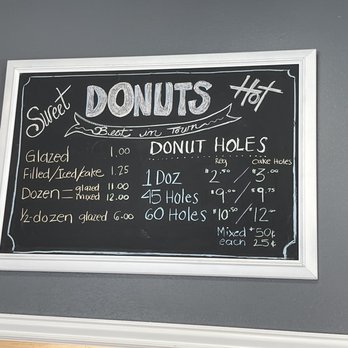 Sweet DONUTS Hot
Best in Town
Glazed 1.00
Filled/Iced/cake 1.25
Dozen = glazed 11.00
mixed 12.00
½-dozen glazed 6.00
DONUT HOLES
Reg cake Holes
1 Doz $2.50 / $3.00
45 Holes $9.00 / $9.75
60 Holes $10.50 / $12.00
Mixed +50¢
each 25¢